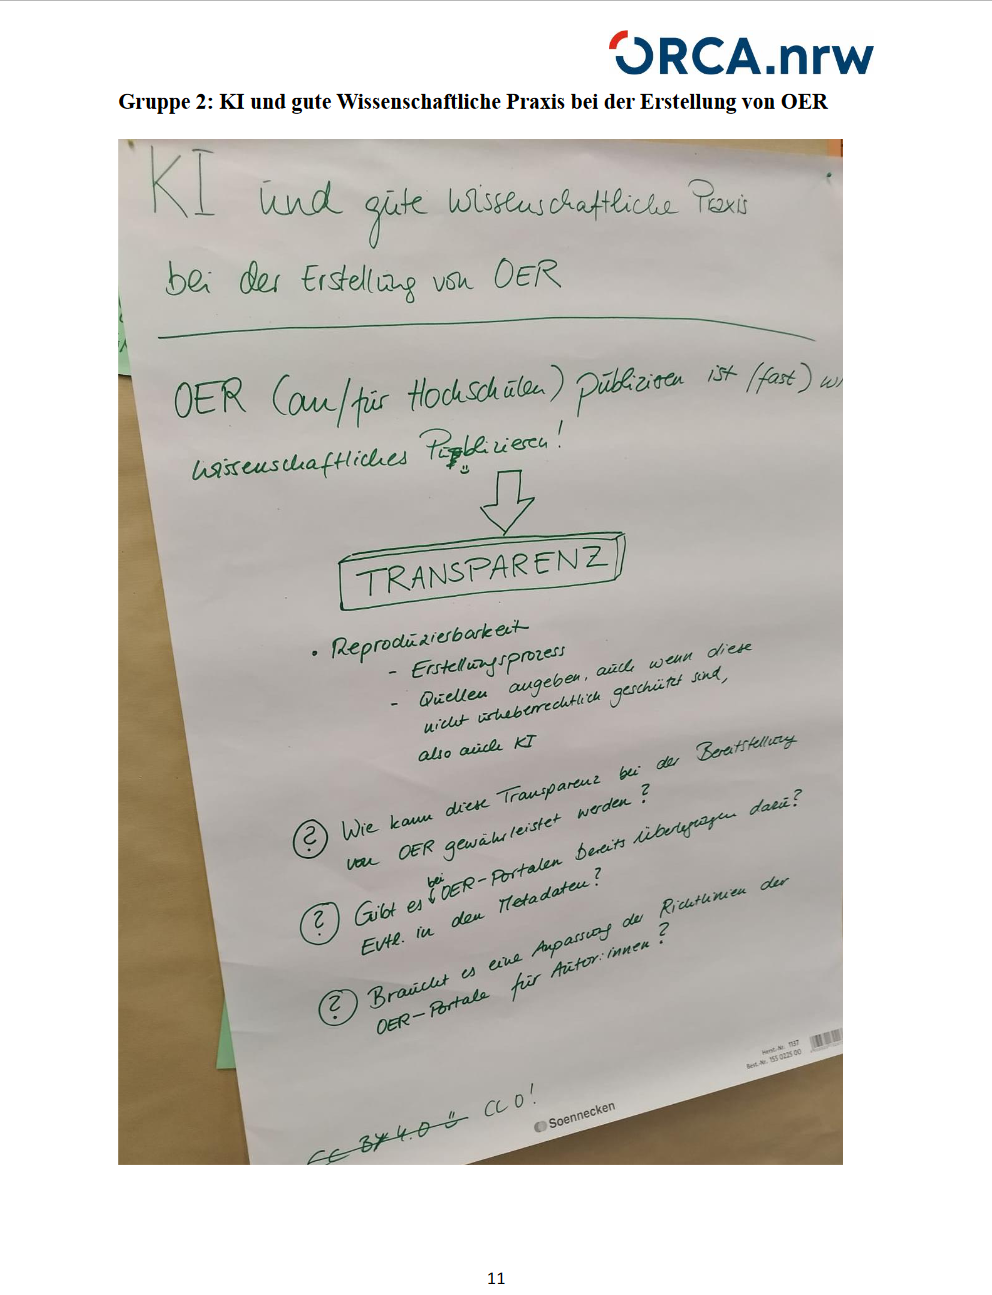 ORCA.nrw
Gruppe 2: KI und gute Wissenschaftliche Praxis bei der Erstellung von OER
KI und gute wissenschaftliche Praxis
bei der Erstellung von OER
OER (an/für Hochschulen) publizieren ist (fast) wi
wissenschaftliches Publizieren!
TRANSPARENZ
• Reproduzierbarkeit
- Erstellungsprozess
- Quellen angeben, auch wenn diese
nicht urheberrechtlich geschützt sind,
also auch KI
? Wie kann diese Transparenz bei der Bereitstellung
von OER gewährleistet werden?
? Gibt es bei OER-Portalen bereits Überlegungen dazu?
Evtl. in den Metadaten?
? Braucht es eine Anpassung der Richtlinien der
OER-Portale für Autor:innen?
Herst.-Nr. 1137
Best.-Nr. 155 0225 00
Soennecken
CC BY 4.0 CC 0!
11